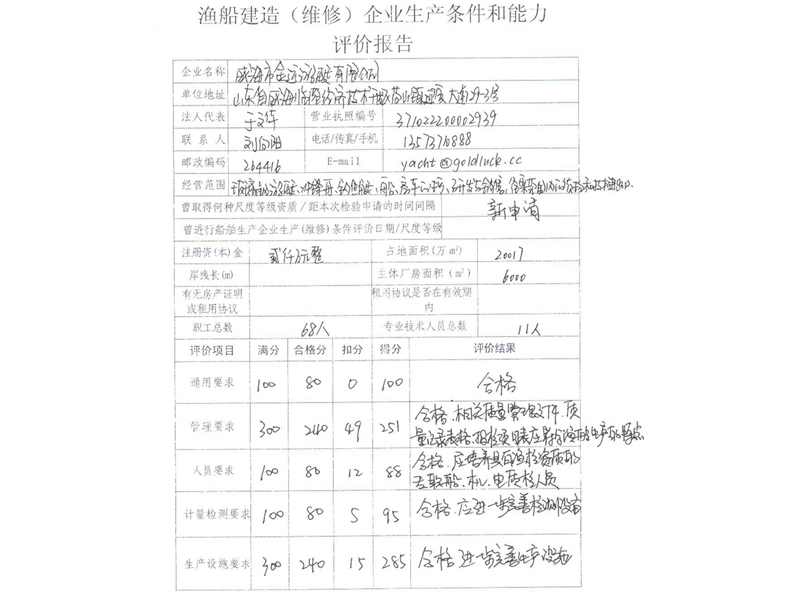 渔船建造（维修）企业生产条件和能力
评价报告
企业名称 威海市金运游艇有限公司
单位地址 山东省威海临港经济技术开发区草庙子镇 大南29-3号
法人代表 于文华 营业执照编号 371022200002939
联系人 刘向阳 电话/传真/手机 13573710888
邮政编码 264416 E-mail yacht@goldluck.cc
经营范围 玻璃钢游艇、冲锋舟、钓鱼艇、
曾取得何种尺度等级资质/距本次检验申请的时间间隔 新申请
曾进行船舶生产企业生产(维修)条件评价日期/尺度等级
注册资(本)金 贰仟万元整 占地面积(万m²) 20017
岸线长(m) 主体厂房面积(m²) 6000
有无房产证明或租用协议 租用协议是否在有效期内
职工总数 68人 专业技术人员总数 11人
评价项目 满分 合格分 扣分 得分 评价结果
通用要求 100 80 0 100 合格
管理要求 300 240 49 251 合格、相关质量管理文件、质
量记录表格、
人员要求 100 80 12 88 合格、应培养具有渔检资质的
船、机、电质检人员
计量检测要求 100 80 5 95 合格、应进一步完善检测设备
生产设施要求 300 240 15 285 合格 进一步完善生产设施